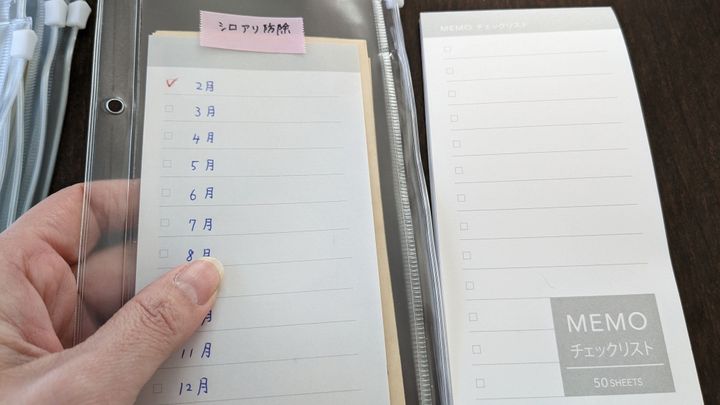 シロアリ防除
✓ 2月
3月
4月
5月
6月
7月
8月
月
11月
12月
MEMO チェックリスト
MEMO
チェックリスト
50 SHEETS